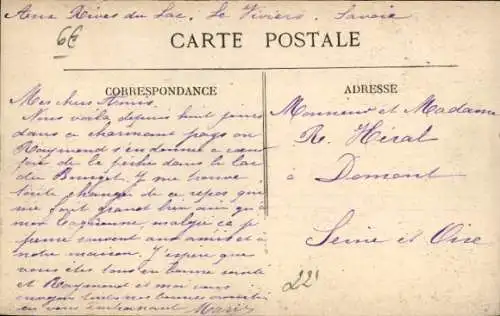 Aux Rives du Lac, Le Viviers. Savoie
6€
CARTE POSTALE
CORRESPONDANCE
ADRESSE
Mes chers Amis.
Nous voilà depuis huit jours
dans ce charmant pays où
Raymond s'en donne à cœur
joie de la pêche dans le lac
du Bourget. Je me trouve
toute changée de ce repos qui
me fait grand bien ainsi qu'à
malgré ce je
pense souvent aux amis et à
notre maison. J'espère que
vous êtes tous en bonne santé
et Raymond et moi vous
envoyons tous nos bonnes amitiés
en vous embrassant Marie
Monsieur et Madame
R. Héral
à Domont
Seine et Oise
22